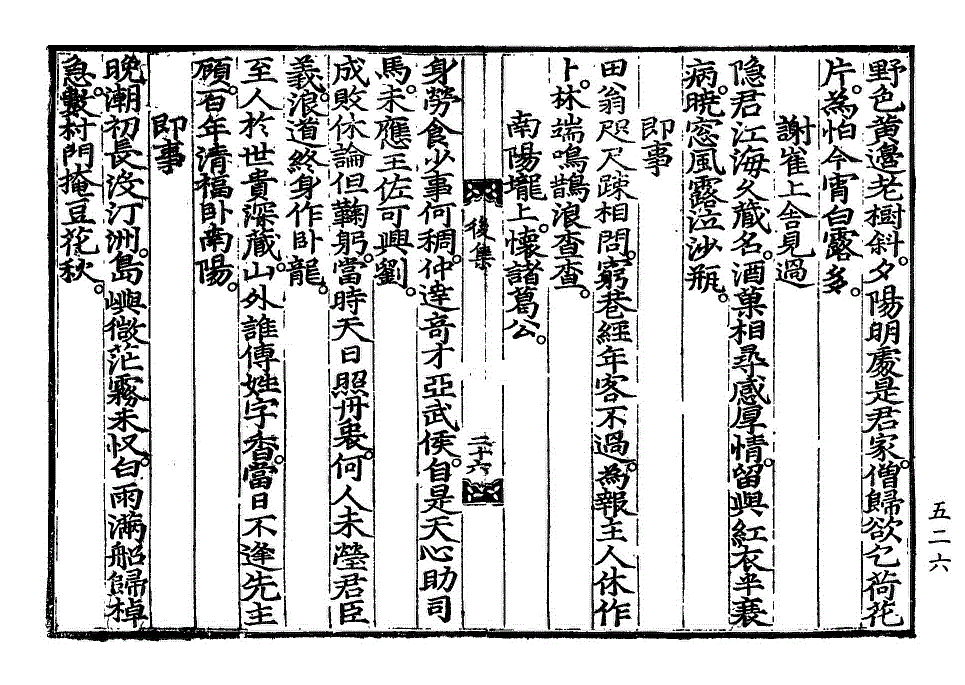 野色黃邊老樹斜。夕陽明處是君家。僧歸欲乞荷花
片。為怕今宵白露多。
謝崔上舍見過
隐君江海久藏名。酒菓相尋感厚情。留與紅衣半裹
病。曉窓風露泣沙瓶。
即事
田翁咫尺疎相問。窮巷經年客不過。為報主人休作
卜。林端鳴鵲浪査査。
南陽壠上。懷諸葛公。
身勞食少事何稠。仲達奇才亞武侯。自是天心助司
馬。未應王佐可興劉。
成敗休論但鞠躬。當時天日照丹衷。何人未瑩君臣
義。浪道終身作卧龍。
至人於世貴深藏。山外誰傳姓字香。當日不逢先主
顧。百年清福卧南陽。
即事
晚潮初長沒汀洲。島嶼微茫霧未收。白雨滿船歸棹
急。數村門掩豆花秋。
後集
二十六
五二六